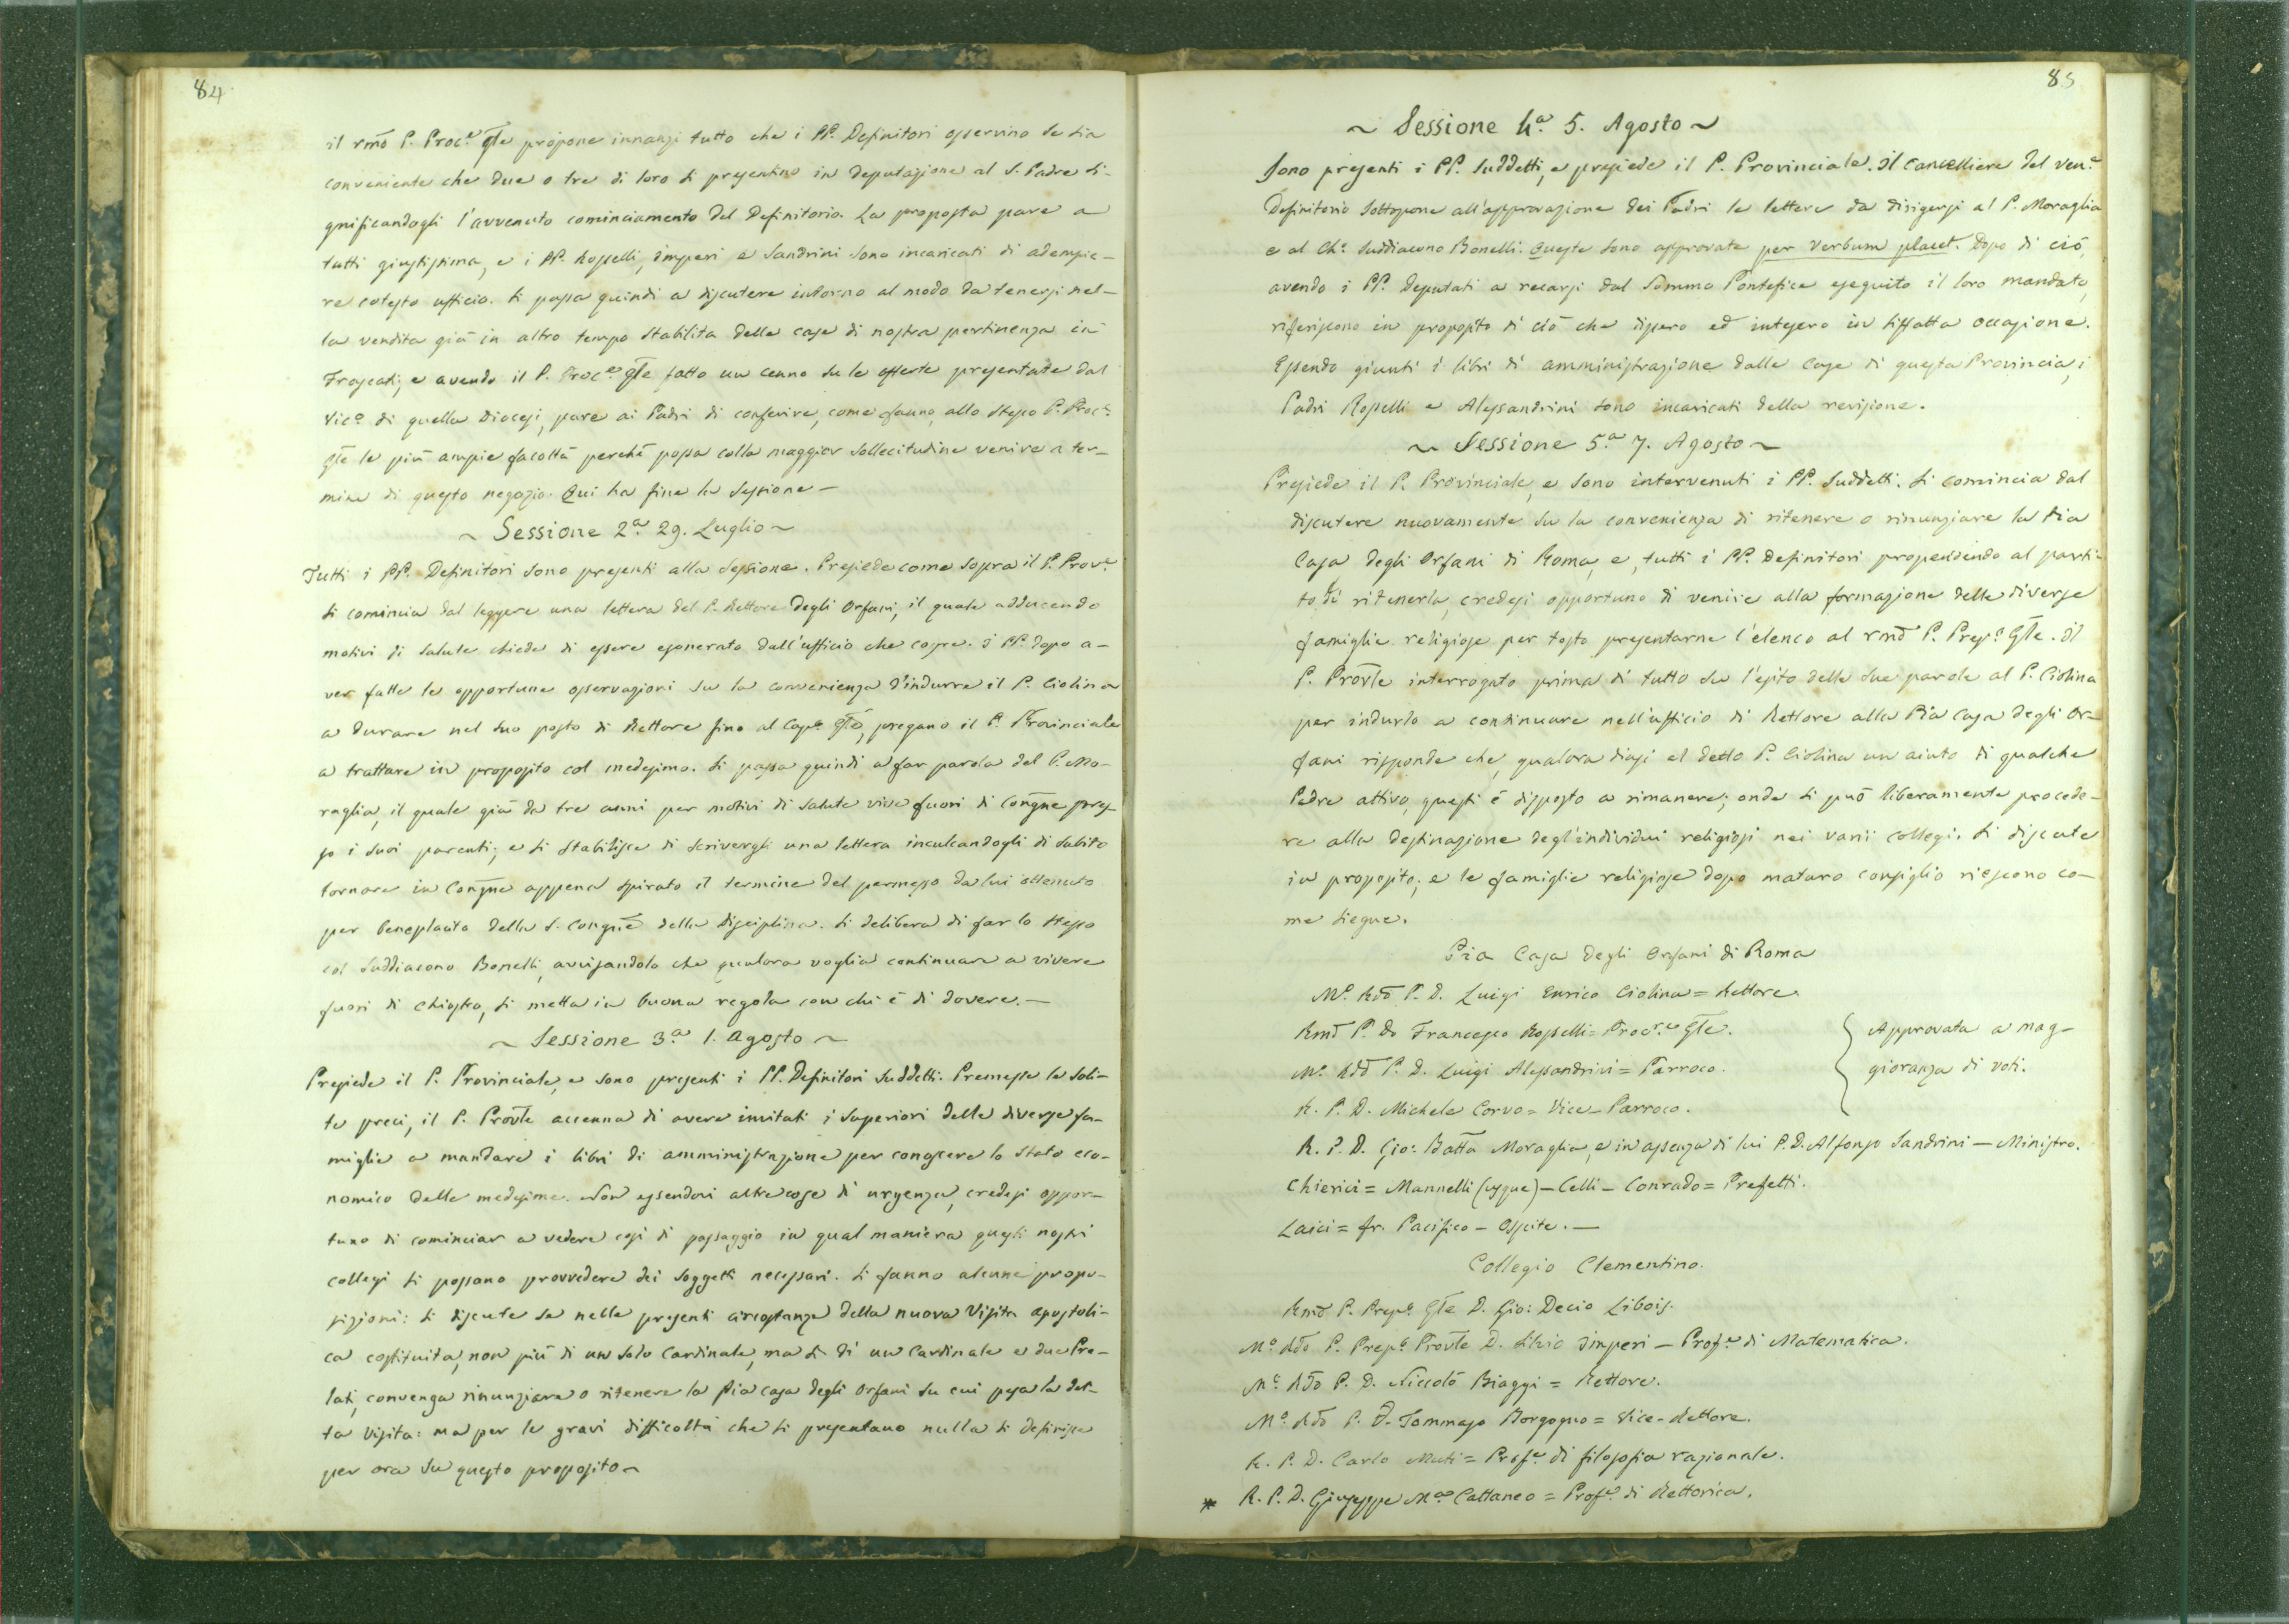 84
il rmo P. Proc.e Gle propone innanzi tutto che i PP. Definitori osservino se sia
conveniente che due o tre di loro si presentino in deputazione al S. Padre si-
gnificandogli l'avvenuto cominciamento del Definitorio. La proposta pare a
tutti giustissima, e i PP. Rosselli, Imperi e Sandrini sono incaricati di adempie-
re cotesto ufficio. Si passa quindi a discutere intorno al modo da tenersi nel-
la vendita già in altro tempo stabilita delle case di nostra pertinenza in
Frascati; e avendo il P. Proc.e Gle fatto un cenno su le offerte presentate dal
Vic.o di quella Diocesi, pare ai Padri di conferire, come fanno, allo stesso P. Proc.e
Gle le più ampie facoltà perché possa colla maggior sollecitudine venire a ter-
mine di questo negozio. Qui ha fine la sessione —
~ Sessione 2.a 29. Luglio ~
Tutti i PP. Definitori sono presenti alla sessione. Presiede come sopra il P. Prov.e
Si comincia dal leggere una lettera del P. Rettore degli Orfani, il quale adducendo
motivi di salute chiede di essere esonerato dall'ufficio che copre. I PP. dopo a-
ver fatte le opportune osservazioni su la convenienza d'indurre il P. Ciolina
a durare nel suo posto di Rettore fino al Cap.o Gle, pregano il P. Provinciale
a trattare in proposito col medesimo. Si passa quindi a far parola del P. Mo-
raglia, il quale già da tre anni per motivi di salute vive fuori di Congne pres-
so i suoi parenti; e si stabilisce di scrivergli una lettera inculcandogli di subito
tornare in Congne appena spirato il termine del permesso da lui ottenuto
per beneplacito della S. Congne della Disciplina. Si delibera di far lo stesso
col Suddiacono Bonelli, avvisandolo che qualora voglia continuare a vivere
fuori di Chiostro, si metta in buona regola con chi è di dovere. —
~ Sessione 3.a 1. Agosto ~
Presiede il P. Provinciale, e sono presenti i PP. Definitori suddetti. Premesse le soli-
te preci, il P. Provle accenna di avere invitati i Superiori delle diverse fa-
miglie a mandare i libri di amministrazione per conoscere lo stato eco-
nomico delle medesime. Non essendovi altre cose di urgenza, credesi oppor-
tuno di cominciar a vedere così di passaggio in qual maniera questi nostri
collegi si possano provvedere dei soggetti necessari. Si fanno alcune propo-
sizioni: si discute se nelle presenti circostanze della nuova Visita apostoli-
ca costituita, non più di un solo Cardinale, ma sì di un Cardinale e due Pre-
lati, convenga rinunziare o ritenere la Pia casa degli Orfani su cui pesa la det-
ta Visita: ma per le gravi difficoltà che si presentano nulla si definisce
per ora su questo proposito ~
85
~ Sessione 4.a 5. Agosto ~
Sono presenti i PP. suddetti, e presiede il P. Provinciale. Il Cancelliere del ven.e
Definitorio sottopone all'approvazione dei Padri le lettere da dirigersi al P. Moraglia
e al Ch.o Suddiacono Bonelli. Queste sono approvate per verbum placet. Dopo di ciò,
avendo i PP. Deputati a recarsi dal Sommo Pontefice eseguito il loro mandato,
riferiscono in proposito di ciò che dissero ed intesero in siffatta occasione.
Essendo giunti i libri di amministrazione dalle case di questa Provincia, i
Padri Rosselli e Alessandrini sono incaricati della revisione.
~ Sessione 5.a 7. Agosto ~
Presiede il P. Provinciale, e sono intervenuti i PP. suddetti. Si comincia dal
discutere nuovamente su la convenienza di ritenere o rinunziare la Pia
Casa degli Orfani di Roma, e, tutti i PP. Definitori propendendo al parti-
to di ritenerla, credesi opportuno di venire alla formazione delle diverse
famiglie religiose per tosto presentarne l'elenco al rmo P. Prep.o Gle. Il
P. Provle interrogato prima di tutto su l'esito delle sue parole al P. Ciolina
per indurlo a continuare nell'ufficio di Rettore alla Pia Casa degli Or-
fani risponde che, qualora diasi al detto P. Ciolina un aiuto di qualche
Padre attivo, questi è disposto a rimanere; onde si può liberamente procede-
re alla destinazione degl'individui religiosi nei varii collegi. Si discute
in proposito, e le famiglie religiose dopo maturo consiglio riescono co-
me siegue.
Pia Casa degli Orfani di Roma
M.o Rdo P. D. Luigi Enrico Ciolina = Rettore.
Rmo P. D. Francesco Rosselli = Proc.re Gle.
M.o Rdo P. D. Luigi Alessandrini = Parroco.
R. P. D. Michele Corvo = Vice-Parroco.
Approvata a mag-
gioranza di voti.
R. P. D. Gio: Batta Moraglia, e in assenza di lui P. D. Alfonso Sandrini — Ministro.
Chierici = Mannelli (usque) — Celli — Conrado = Prefetti.
Laici = fr. Pacifico — Ospite. —
Collegio Clementino.
Rmo P. Prep.o Gle D. Gio: Decio Libois.
M.o Rdo P. Prep.o Provle D. Silvio Imperi — Prof.e di Matematica.
M.o Rdo P. D. Niccolò Biaggi = Rettore.
M.o Rdo P. D. Tommaso Borgogno = Vice-Rettore.
R. P. D. Carlo Muti = Prof.e di filosofia razionale.
* R. P. D. Giuseppe M.a Cattaneo = Prof.e di Rettorica.